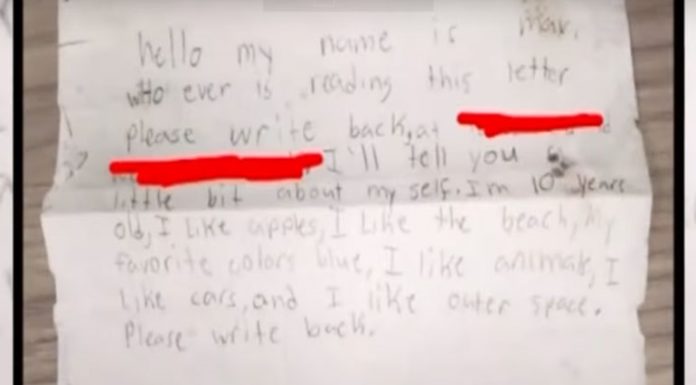 hello my name is Max,
who ever is reading this letter
please write back, at
I'll tell you a
little bit about my self. Im 10 years
old, I like apples, I like the beach, My
favorite colors blue, I like animals, I
like cars, and I like outer space.
Please write back.